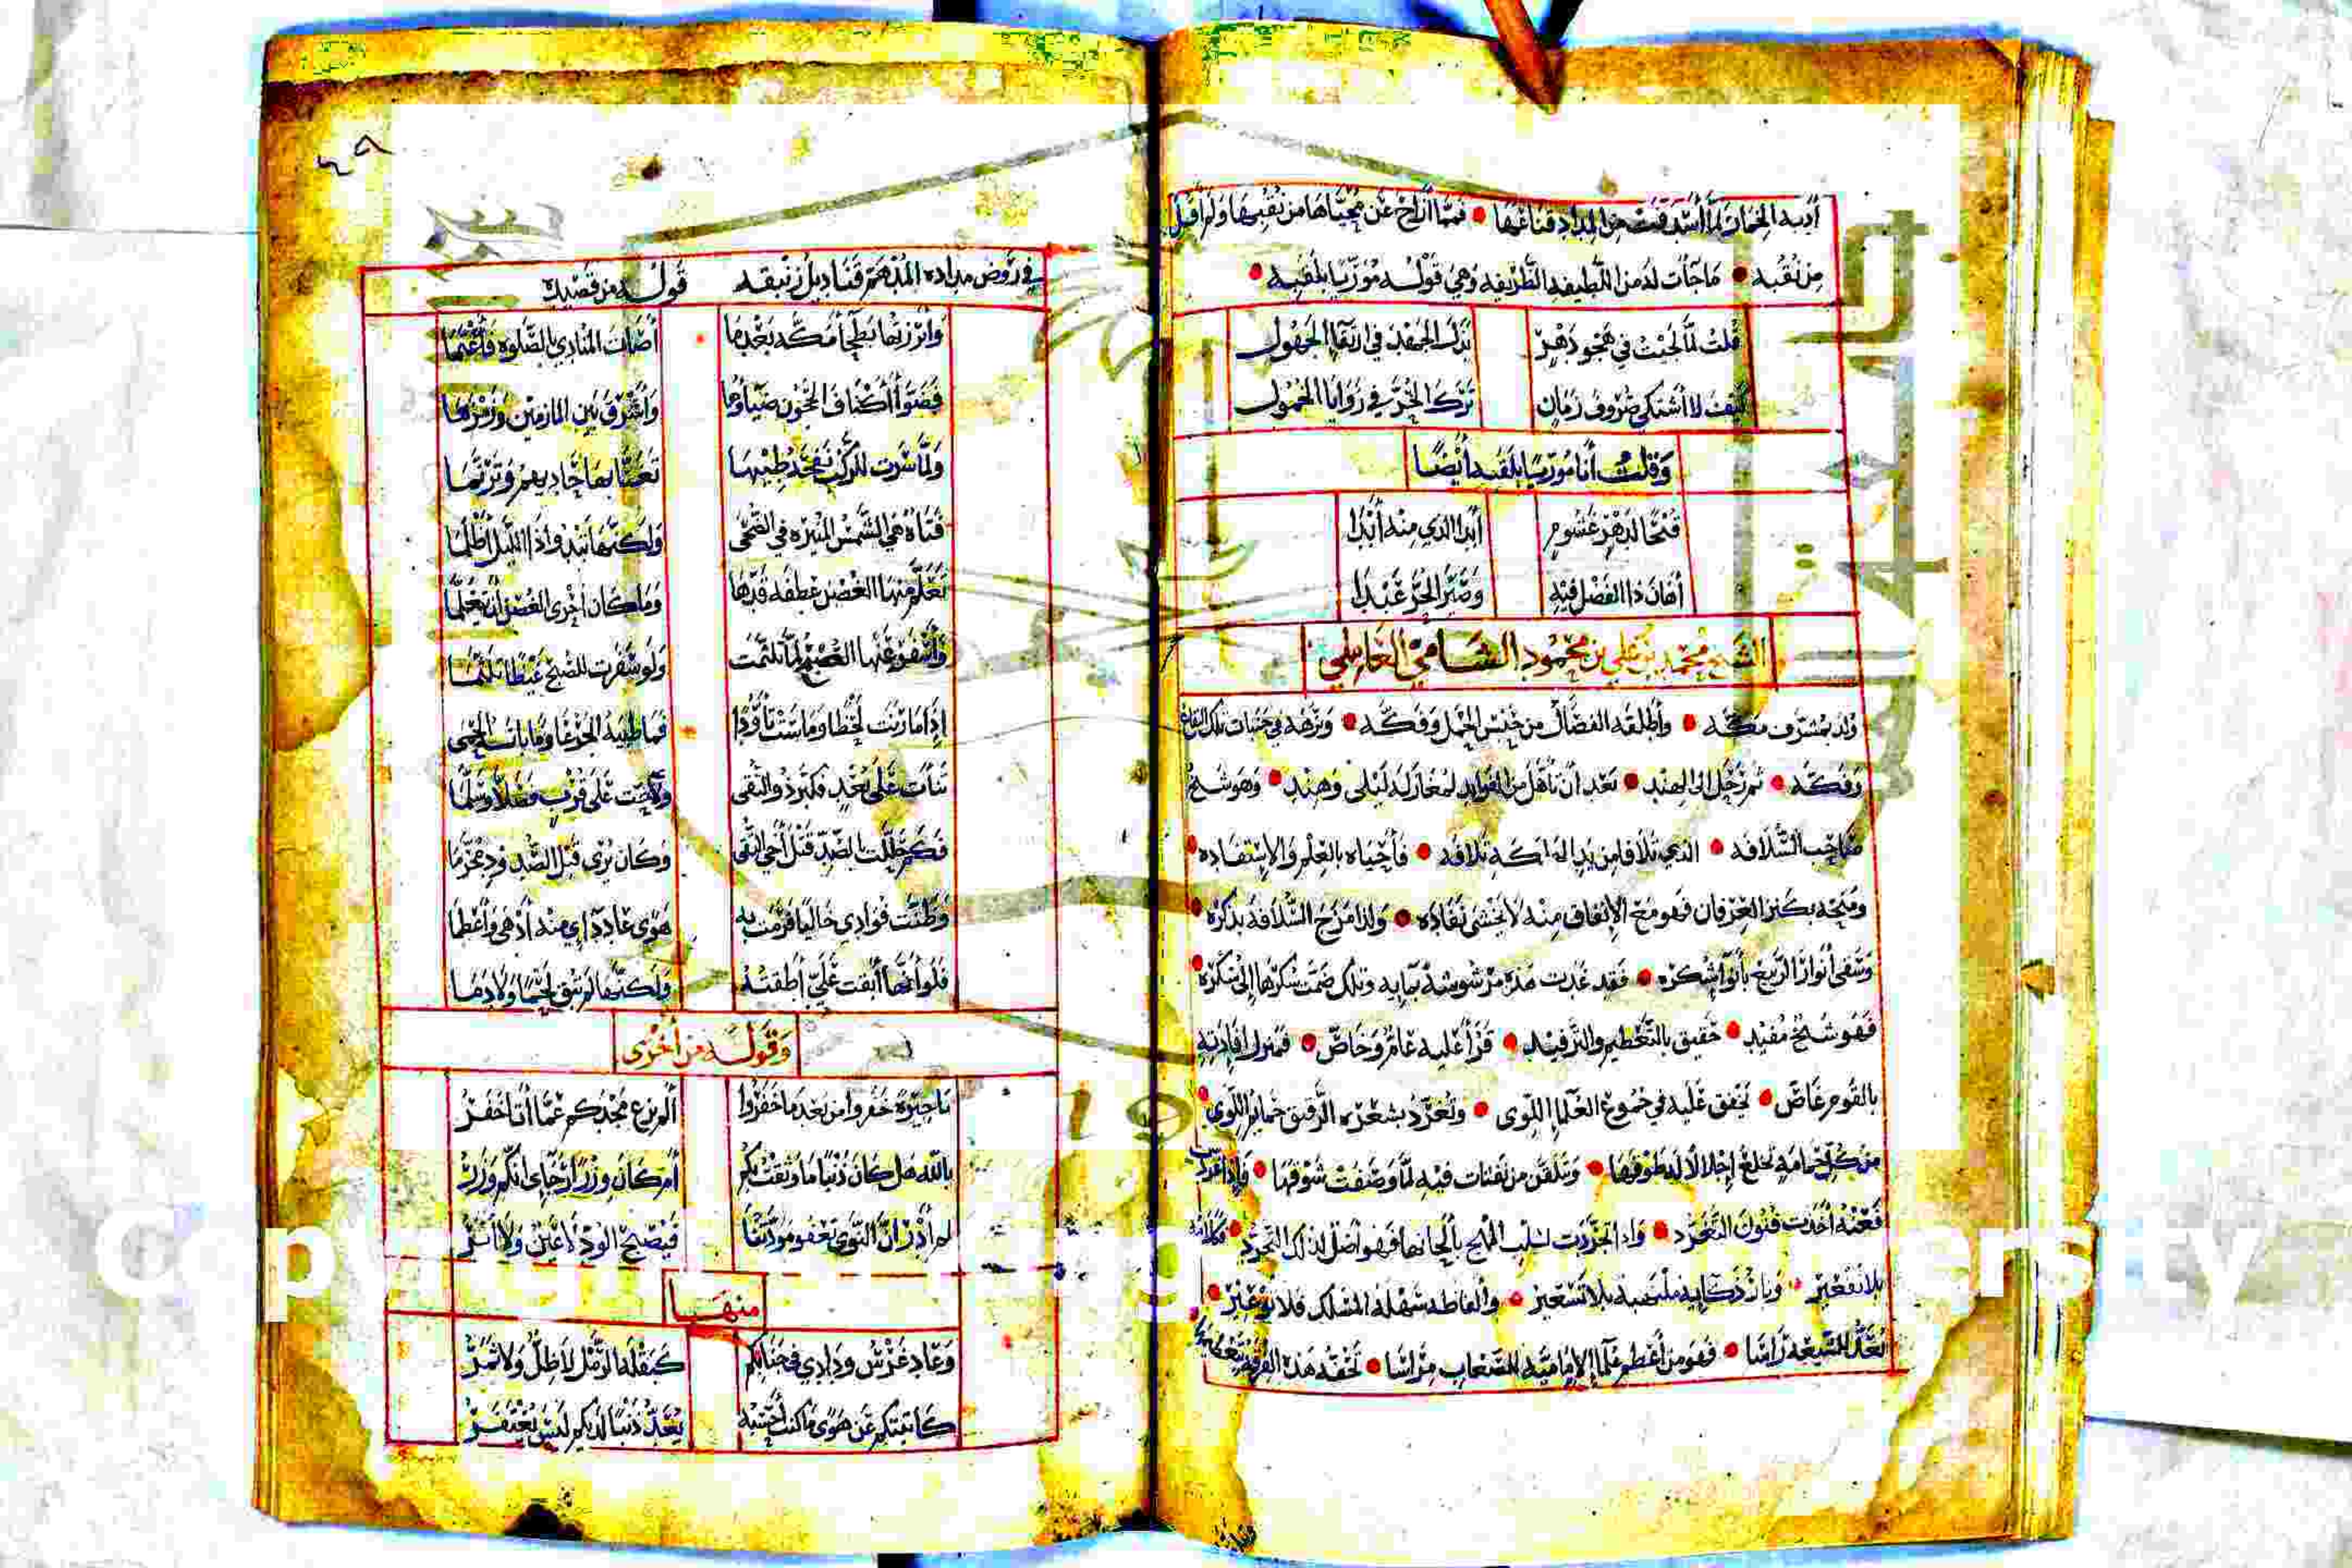 أدبه الخمار لما أسدفت من المداد قناعها • فمما أزاح عن محياها من نقبها ولم أقل
من نقبه • ما جآت لدمن اللطيفه الظريفه وهي قوله مورّيا بلقبه •
قلت لما لحيت في هجو دهر بذل الجهد في ارتقآ الجهول
كيف لا أشتكي صروف زمان ترك الحرّ في زوايا الخمول
وقلت أنا مورّيا بلقبه أيضًا
قبحًا لدهر غشوم أبدا الذي منه أبدا
أهان ذا الفضل فيه وصيّر الحرّ عبدا
الشيخ محمد بن علي بن محمود الشامي العاملي
ولد بمشرف مكّه • وأطلقه الفضال من حبس الخمل وفكّه • ونزهه في جنات تلك البقاع
وفكّه • ثم رحل الى الهند • بعد أن تأهل من الفوايد لمغازلة ليلى وهند • وهو شيخ
صاحب السّلافه • الذي تلافا من يد الهلكة تلافه • فأحياه بالعلم والاستفاده •
ومنحه بكنز العرفان فهو مع الإنفاق منه لا يخشى نفاده • ولذا مزج السّلافة بذكره •
وسقى أنوار الربيع بأنوآ شكره • فقد غدت هذه مرشوشة بمايه وتلك ضمت سكرها إلى سكره
فهو شيخ مفيد • حقيق بالتعظيم والترفيد • قرأ عليه عامّ وخاصّ • فمنزل افادته
بالقوم غاصّ • تخفق عليه في جموع العلمآ اللوى • وتغرّد بشعره الرقيق حمايم اللوى •
من كل حمامة تخلع إجلالا له طوقها • وتلقن من نفثات فيه لما وصفت شوقها •
فعنه أخذت فنون التغرّد • واذا تجرّدت لسلب المهج بألحانها فهو أصل لذلك التجرّد •
بلا تقعير • ونار ذكايه ملتهبة بلا تسعير • وألفاظه سهلة المسلك فلا توعير •
تعدّ للشيعة رأسا • فهو من أعظم علمآ الإماميّة للصعاب مراسا •
٤٩
في روض مداده المدهمّ قناديل زنبقه قوله من قصيدة
وأبرزتها بطحآ مكّة بعدما أصات المنادي بالصّلوة فأعتما
فضوّأ أكناف الحجون ضياؤها وأشرق بين المازمين وزمزما
ولمّا سرت للركب نفحة طيبها تغنّا بها حاديهمُ وترنّما
فتاة هي الشمس المنيره في الضحى ولكنّها تبدو اذا الليل أظلما
تعلّم منها الغصن عطفة قدّها وما كان أحرى الغصن أن يتعلّما
وأسفر عنها الصبح لمّا تلثّمت ولو سفرت للصبح غيظًا تلثّما
إذا ما رنت لحظا وماست تأوّدا فما ظبية الجرعا وما بانة الحمى
نأت على بعد فلم ترد والنقى ولاحت على قرب فصلّا وسلّما
فكم حلّلت بالصّدّ قتل أخي التقى وكان يرى قبل الصّد ود محرّما
وظنّت فوادي خاليا فرمت به هوى عاد دآي منه أدهى وأعظما
فلو أنّها أبقت عليّ أطقته ولكنّها لم تبق لحمًا ولا دما
وقوله من أخرى
يا جيرة خفروا من بعد ما خفروا ألم يزع مجدكم عمّا أنا خفر
بالله هل كان ذنبًا ما وثقت بكم أم كان وزرًا رجاي انّكم وزر
لم أدر انّ النّوى تعفو مودّتنا فيصبح الودّ لا عين ولا أثر
منها
وعاد غرس ودادي في جنابكم كبقلة الرّمل لا ظلّ ولا ثمر
كأتيتكم عن هوى ما كنت أحسبه يعدّ ذنبًا لديكم ليس يغتفر